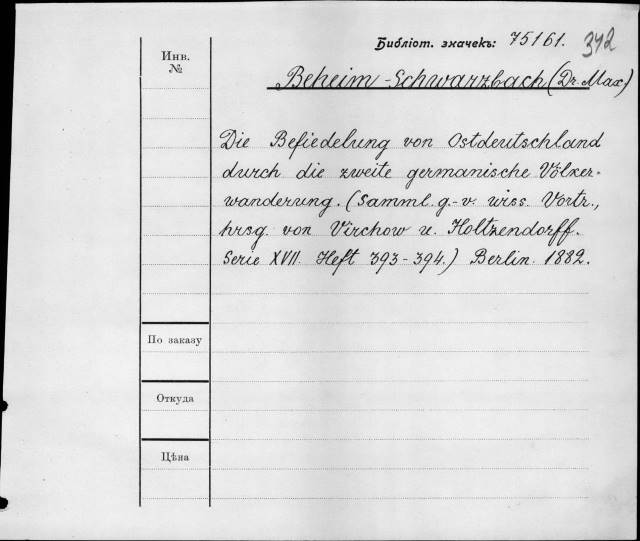 Библіот. значекъ: 75161. 372
Инв. №
Beheim-Schwarzbach (Dr. Max.)
Die Besiedelung von Ostdeutschland
durch die zweite germanische Völker-
wanderung. (Samml. g.-v. wiss. Vortr.,
hrsg. von Virchow u. Holtzendorff.
Serie XVII. Heft 393-394.) Berlin. 1882.
По заказу
Откуда
Цѣна